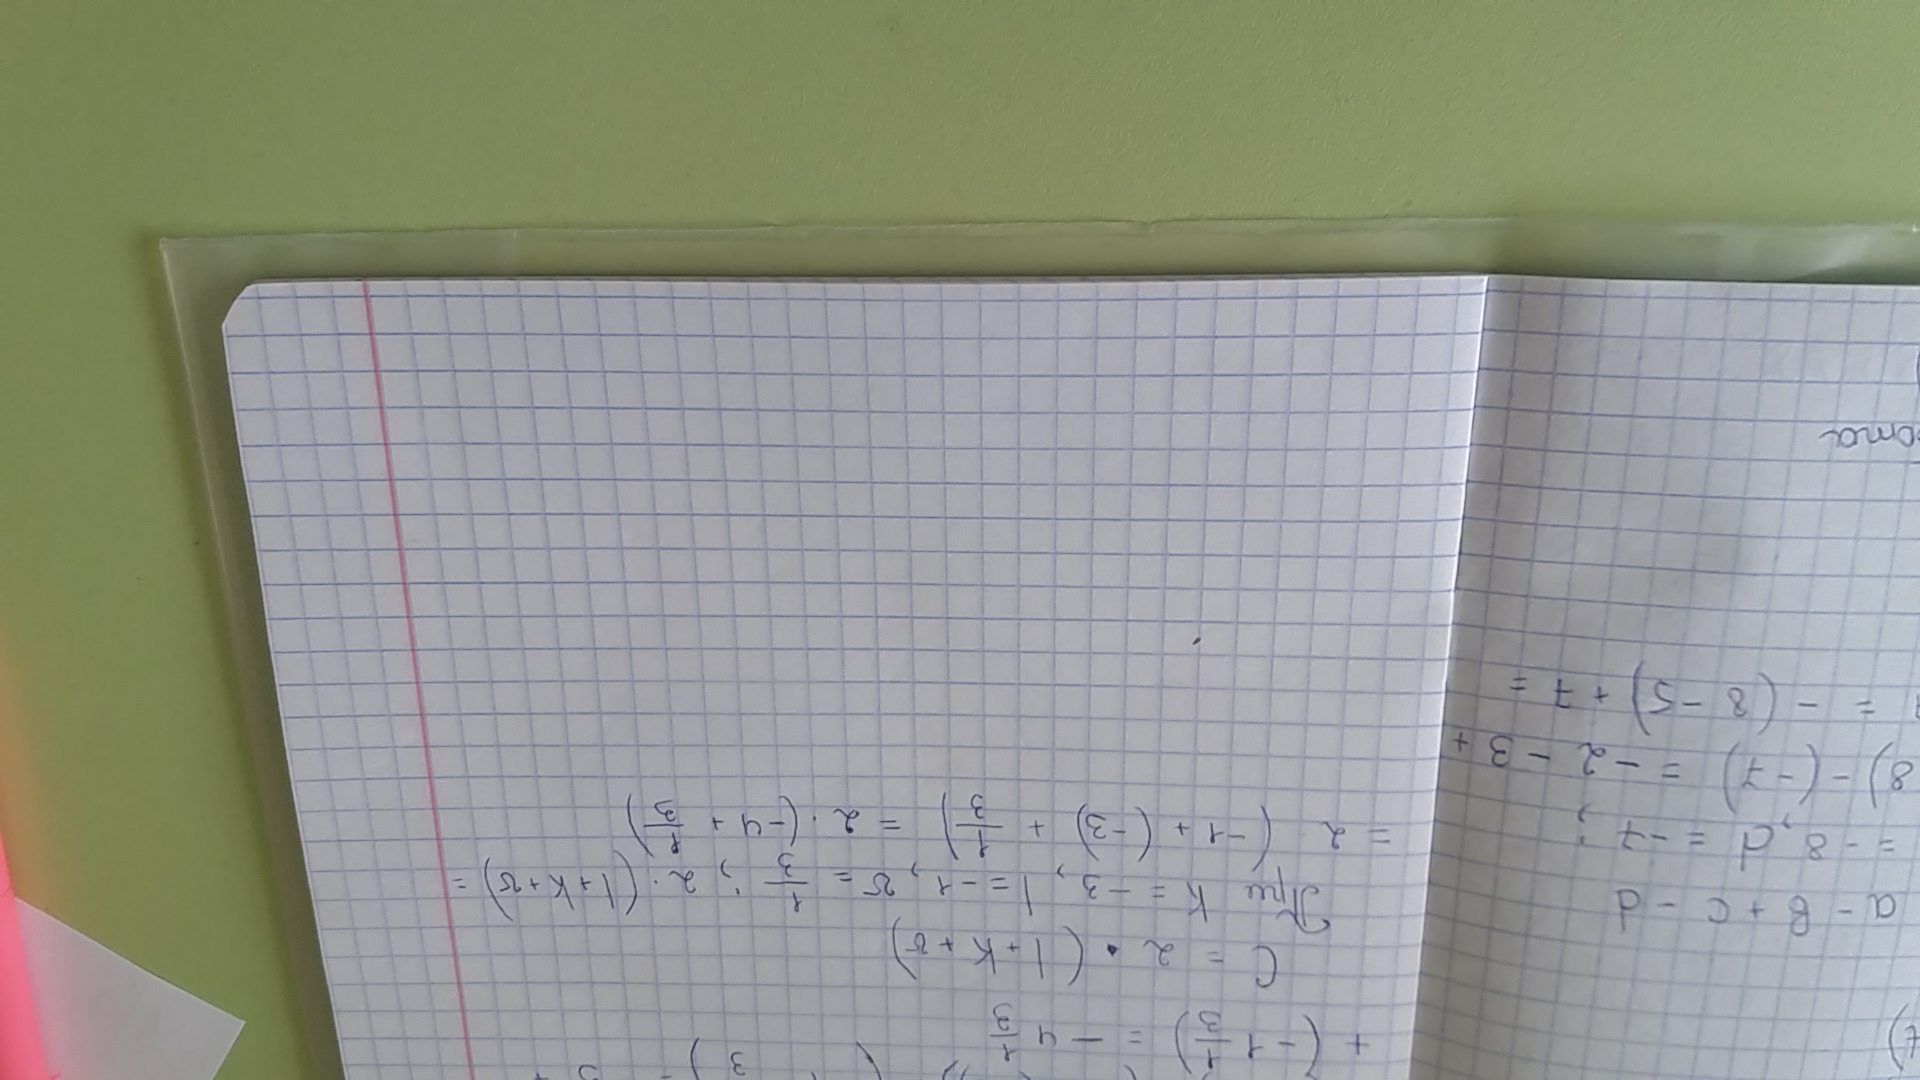 + (-1 1/3) = -4 1/3
C = 2 · (l + k + v)
При k = -3, l = -1, v = 1/3; 2 · (l + k + v) =
= 2 (-1 + (-3) + 1/3) = 2 · (-4 + 1/3)
a - b + c - d
= -8, d = -7;
8) - (-7) = -2 - 3 +
= - (8 - 5) + 7 =